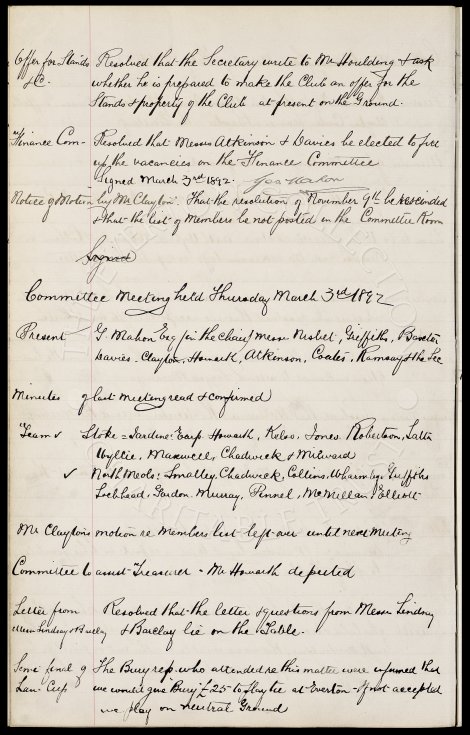 Offer for Stands Resolved that the Secretary write to Mr Houlding & ask
&c. whether he is prepared to make the Club an offer for the
Stands & property of the Club at present on the Ground.
Finance Com- Resolved that Messrs Atkinson & Davies be elected to fill
up the vacancies on the Finance Committee
Signed March 3rd 1892. Geo Mahon
Notice of Motion by Mr Clayton. That the resolution of November 9th be rescinded
& that the list of Members be not posted in the Committee Room
Signed
Committee Meeting held Thursday March 3rd 1892
Present G. Mahon Esq (in the chair) Messrs Nisbet, Griffiths, Baxter
Davies. Clayton, Howarth, Atkinson, Coates, Ramsay & the Sec
Minutes of last meeting read & confirmed
Teams v Stoke = Jardine: Earp. Howarth, Kelso, Jones Robertson, Latta
Wyllie, Maxwell, Chadwick & Milward
v North Meols: Smalley, Chadwick, Collins, Wharmby, Griffiths
Lochhead, Gordon. Murray, Pinnel, McMillan, Elliott
Mr Clayton's motion re Members list left over until next Meeting
Committee to assist Treasurer - Mr Howarth deputed
Letter from Resolved that the letter & questions from Messrs Lindsay
Messrs Lindsay & Barclay & Barclay lie on the Table.
Semi final of The Bury reps. who attended re this matter were informed that
Lan: Cup we would give Bury £25 to play tie at Everton - If not accepted
we play on neutral Ground